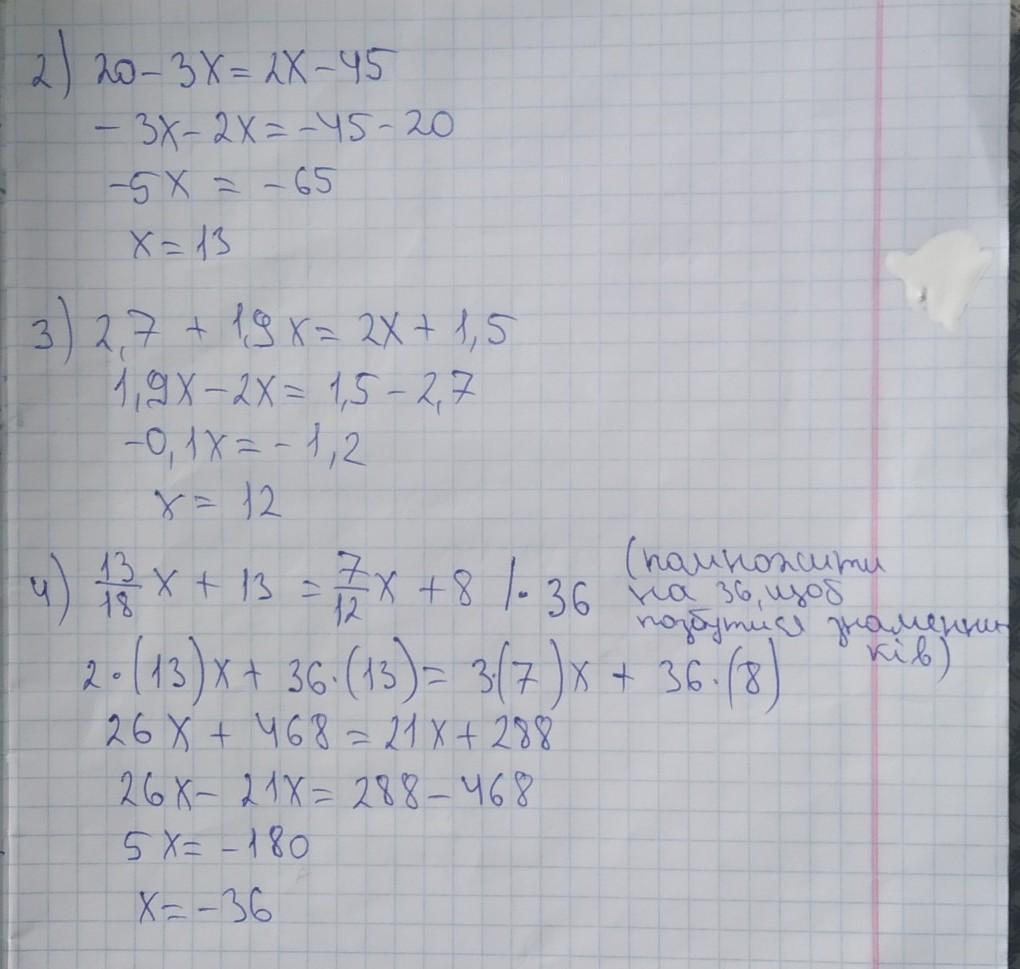 2) 20 - 3x = 2x - 45
- 3x - 2x = -45 - 20
-5x = -65
x = 13
3) 2,7 + 1,9x = 2x + 1,5
1,9x - 2x = 1,5 - 2,7
-0,1x = -1,2
x = 12
4) 13/18 x + 13 = 7/12 x + 8 /· 36 (помножити
на 36, щоб
позбутися знаменни
ків)
2·(13)x + 36·(13) = 3·(7)x + 36·(8)
26x + 468 = 21x + 288
26x - 21x = 288 - 468
5x = -180
x = -36